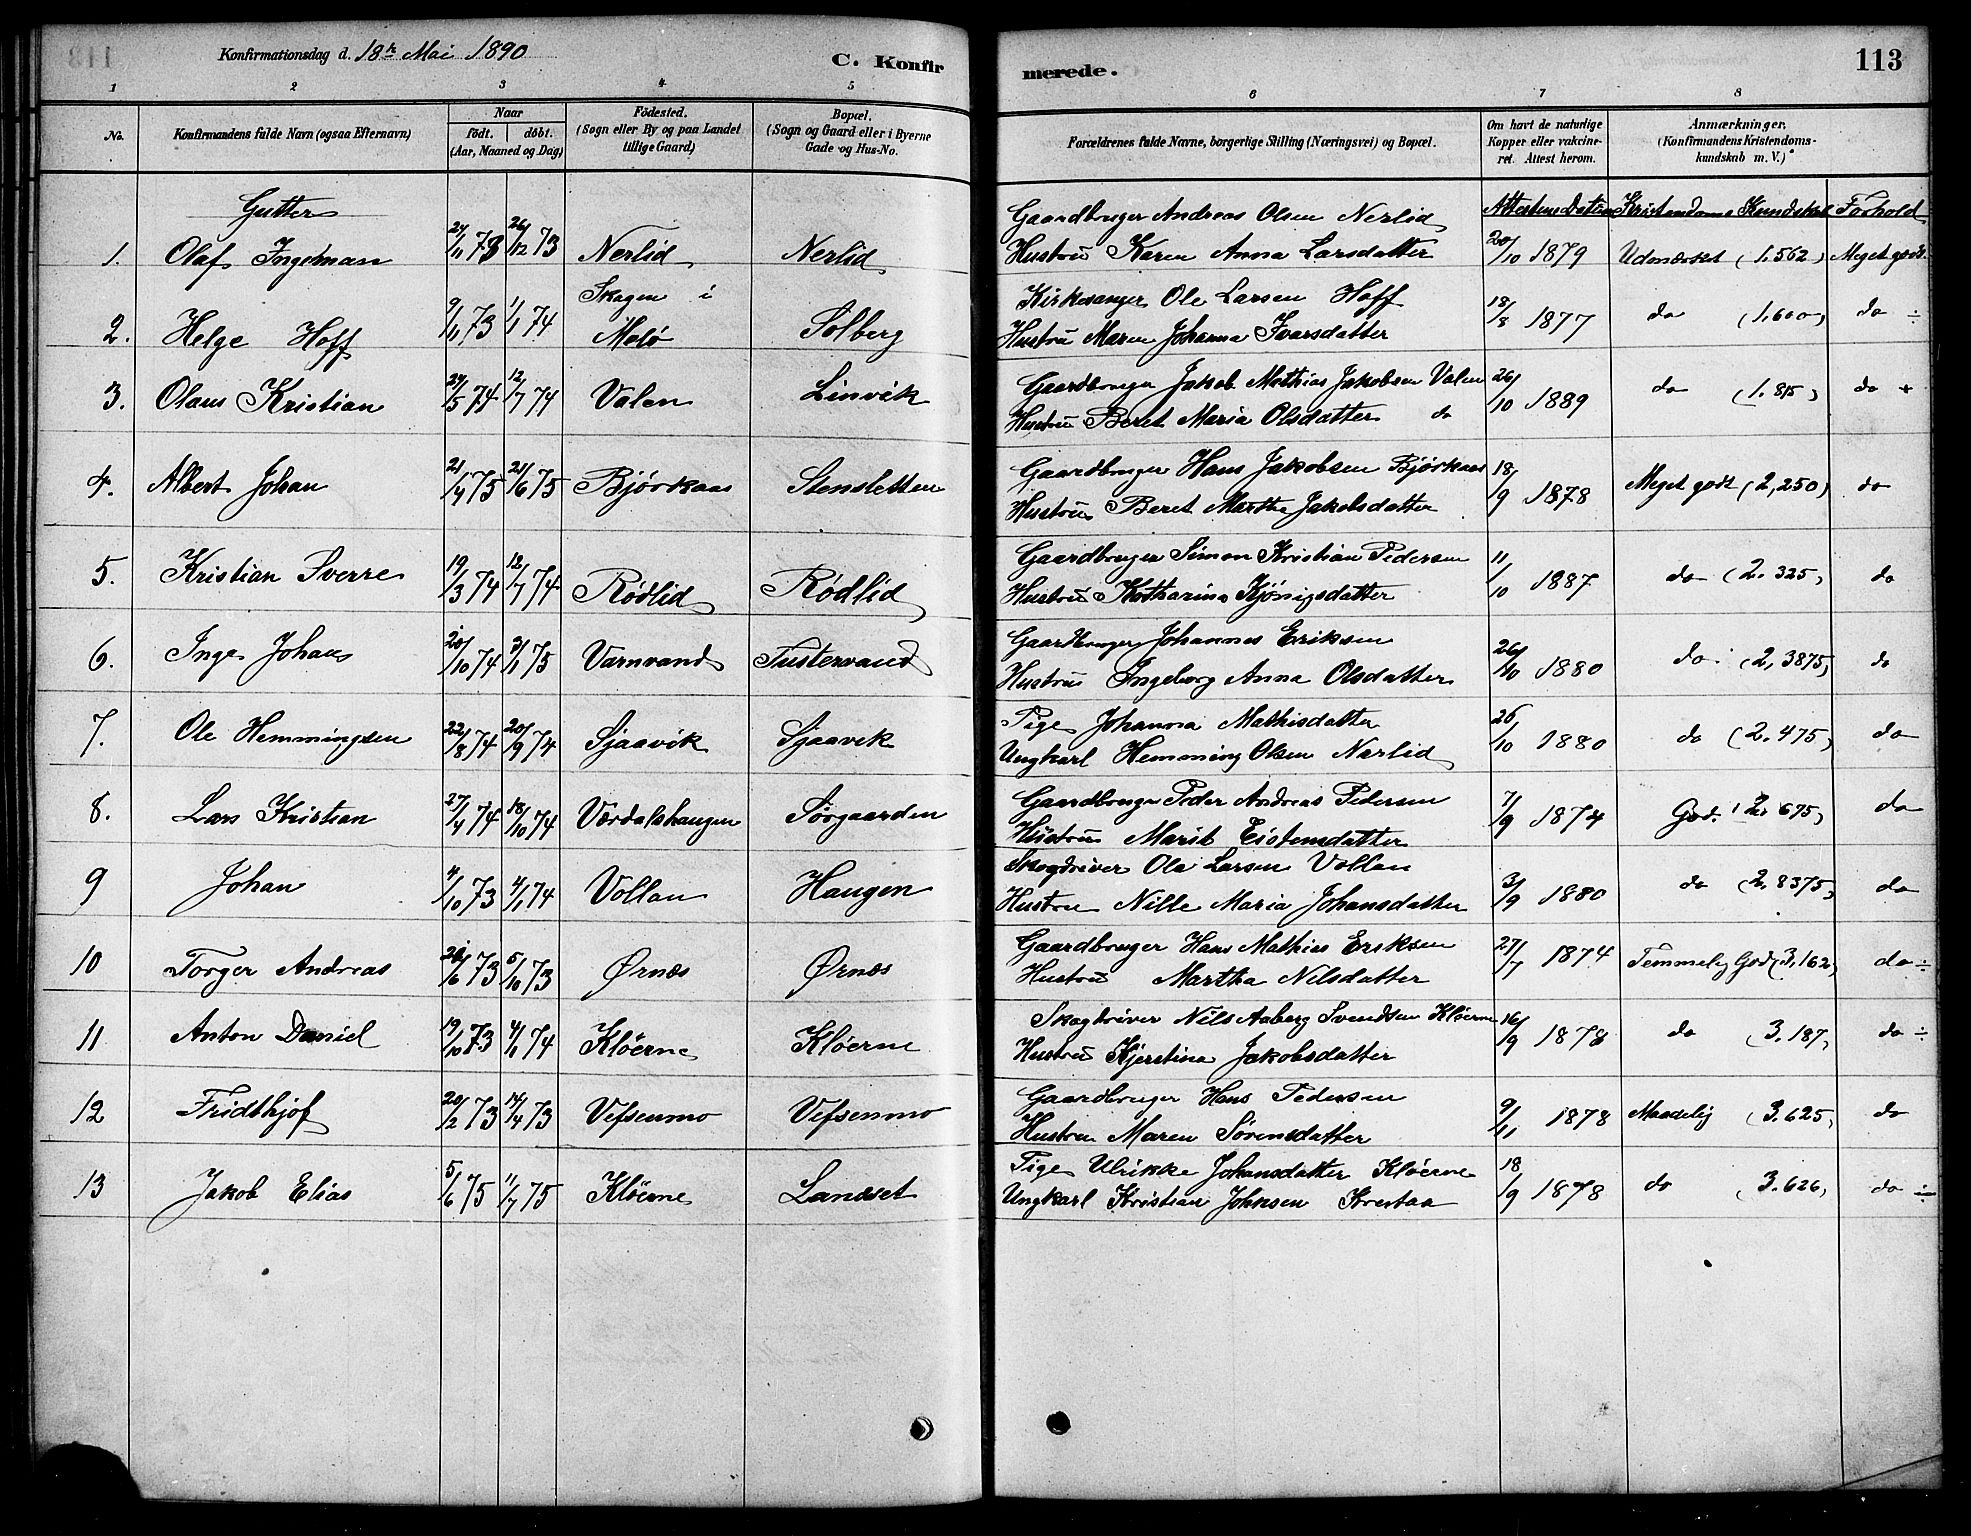 Konfirmationsdag d. 18de Mai 1890
C. Konfirmerede.
113
1 2 3 4 5 6 7 8
No.
Konfirmandens fulde Navn (ogsaa Efternavn)
Naar
födt. döbt.
(Aar, Maaned og Dag)
Födested.
(Sogn eller By og paa Landet
tillige Gaard)
Bopæl.
(Sogn og Gaard eller i Byerne
Gade og Hus-No.
Forældrenes fulde Navne, borgerlige Stilling (Næringsvei) og Bopæl.
Om havt de naturlige
Kopper eller vakcine-
ret. Attest herom.
Anmærkninger.
(Konfirmandens Kristendoms-
kundskab m. V.)
Gutter
Attestens Datum Kristendoms Kundskab Forhold
Gaardbruger Andreas Olsen Nerlid
1. Olaf Ingelman 27/11 73 26/12 73 Nerlid Nerlid Hustru Karen Anna Larsdatter 20/10 1879 Udmærket (1.562) Meget godt.
Skagen i Kirkesanger Ole Larsen Hoff
2. Helge Hoff 9/11 73 1/1 74 Melö Solberg Hustru Maren Johanna Ivarsdatter 18/8 1877 do (1.600) do ÷
Gaardbruger Jakob Mathias Jakobsen Valen
3. Olaus Kristian 27/5 74 12/7 74 Valen Linvik Hustru Beret Maria Olsdatter do 26/10 1889 do (1.815) do +
Gaardbruger Hans Jakobsen Bjørkaas
4. Albert Johan 21/4 75 21/6 75 Bjørkaas Stensletten Hustru Beret Martha Jakobsdatter 18/9 1878 Meget godt (2,250) do
Gaardbruger Simon Kristian Pedersen
5. Kristian Sverre 19/3 74 12/7 74 Rødlid Rødlid Hustru Katharina Kjönigsdatter 11/10 1887 do (2.325) do
Gaardbruger Johannes Eriksen
6. Inge Johan 20/10 74 3/1 75 Varnvand Tustervand Hustru Ingeborg Anna Olsdatter 26/10 1880 do (2,3875) do
Pige Johanna Mathisdatter
7. Ole Hemmingsen 22/8 74 20/9 74 Sjaavik Sjaavik Ungkarl Hemming Olsen Nærlid 26/10 1880 do (2.475) do
Gaardbruger Peder Andreas Pedersen
8. Lars Kristian 27/4 74 18/10 74 Værdalshaugen Sørgaarden Hustru Marit Eistensdatter 7/9 1874 God. (2.675) do
Skogdriver Ole Larsen Vollan
9 Johan 4/10 73 4/1 74 Vollan Haugen Hustru Nille Maria Johansdatter 3/9 1880 do (2.8375) do
Gaardbruger Hans Mathias Eriksen
10 Torger Andreas 26/6 73 5/10 73 Ørnæs Ørnæs Hustru Martha Nilsdatter 27/7 1874 Temmelig God (3,162) do ÷
Skogdriver Nils Aaberg Svendsen Klöerne
11 Anton Daniel 19/10 73 4/1 74 Klöerne Klöerne Hustru Kjerstina Jakobsdatter 16/9 1878 do 3.187) do ÷
Gaardbruger Hans Pedersen
12 Fridthjof 20/2 73 14/4 73 Vefsenmo Vefsenmo Hustru Maren Sörensdatter 9/11 1878 Maadelig (3.625) do
Pige Ulrikke Johansdatter Klöerne
13 Jakob Elias 5/6 75 11/7 75 Klöerne Landset Ungkarl Kristian Johnsen Krestaa 18/9 1878 do (3.626) do ÷